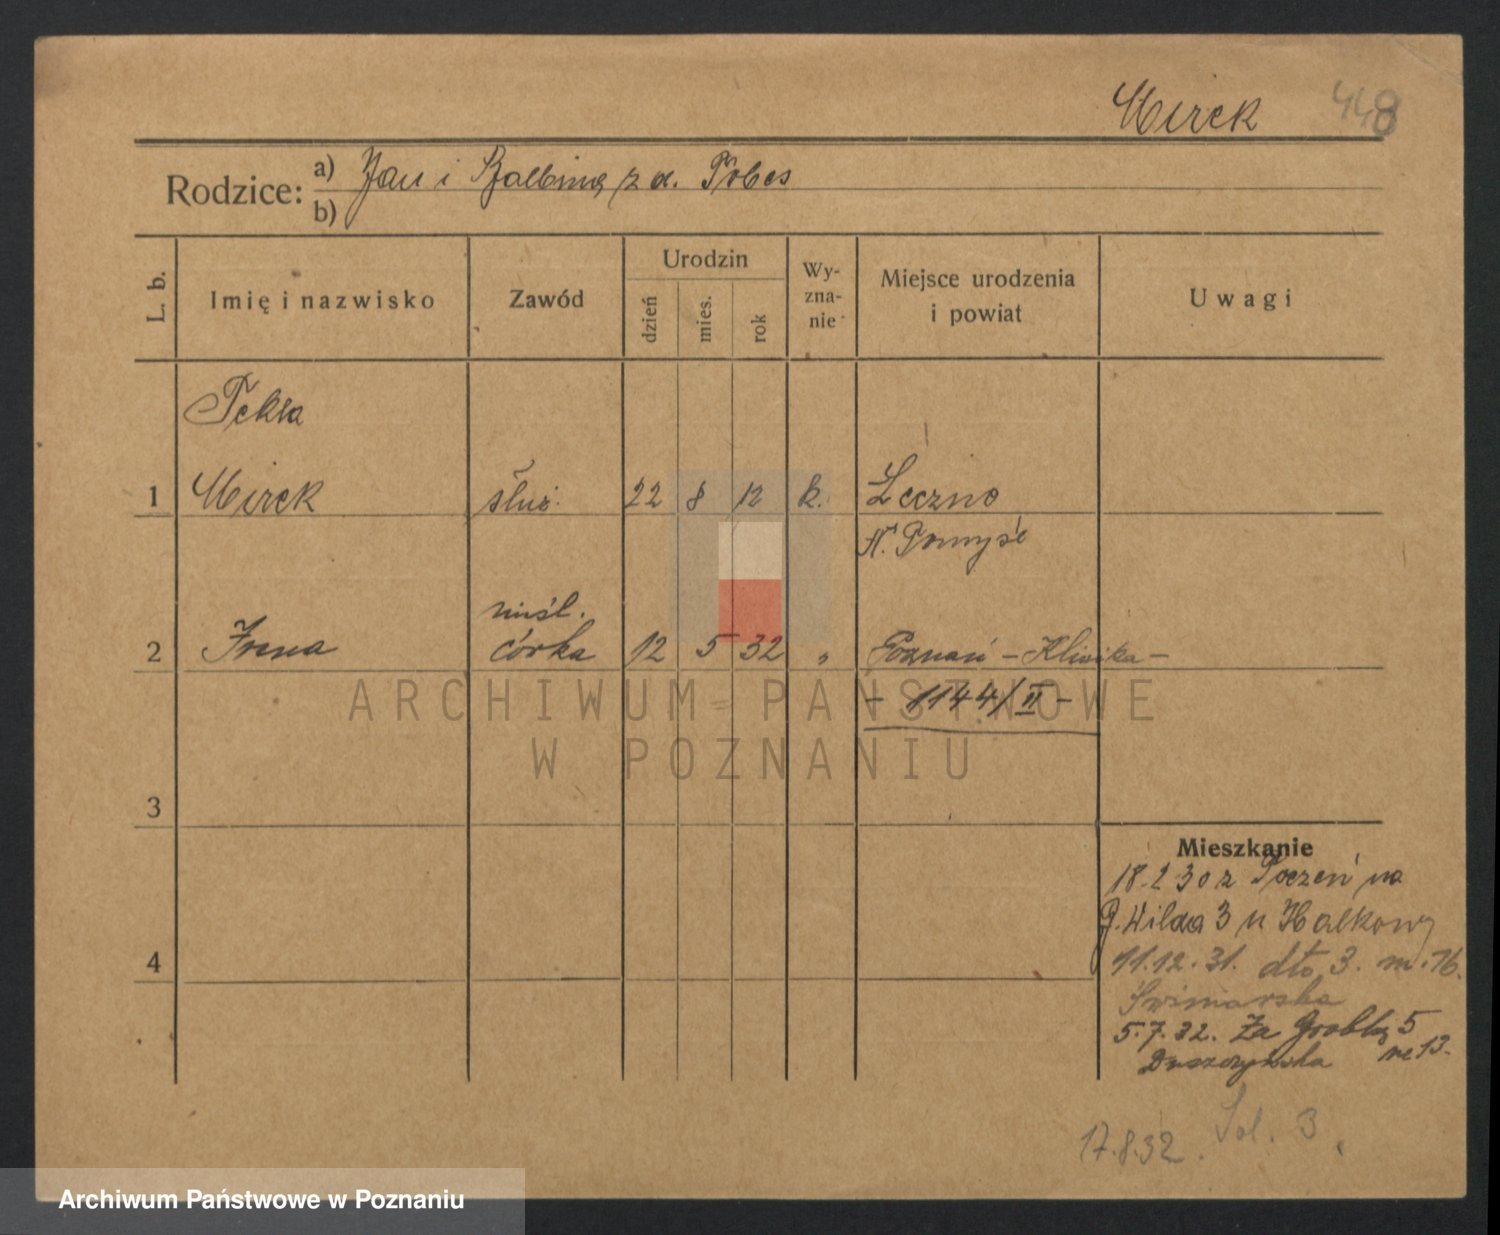 Mirek 448
Rodzice: a) Jan i Balbina z d. Pobes
b)
L. b.
Imię i nazwisko
Zawód
Urodzin
dzień
mies.
rok
Wy-
zna-
nie
Miejsce urodzenia
i powiat
Uwagi
Tekla
1 Mirek służ. 22 8 12 k. Leczno
N. Pomyśl
nieśl.
2 Irena córka 12 5 32 „ Poznań – Klinika –
– 1144/II –
3
4
Mieszkanie
18.2 30 z na
G. Wilda 3 u Halkowy
11.12.31. dto 3. m. 76.
5.7.32. Za Groblą 5
Duszczyńska m 13.
17.8.32. 3
ARCHIWUM PAŃSTWOWE
W POZNANIU
Archiwum Państwowe w Poznaniu